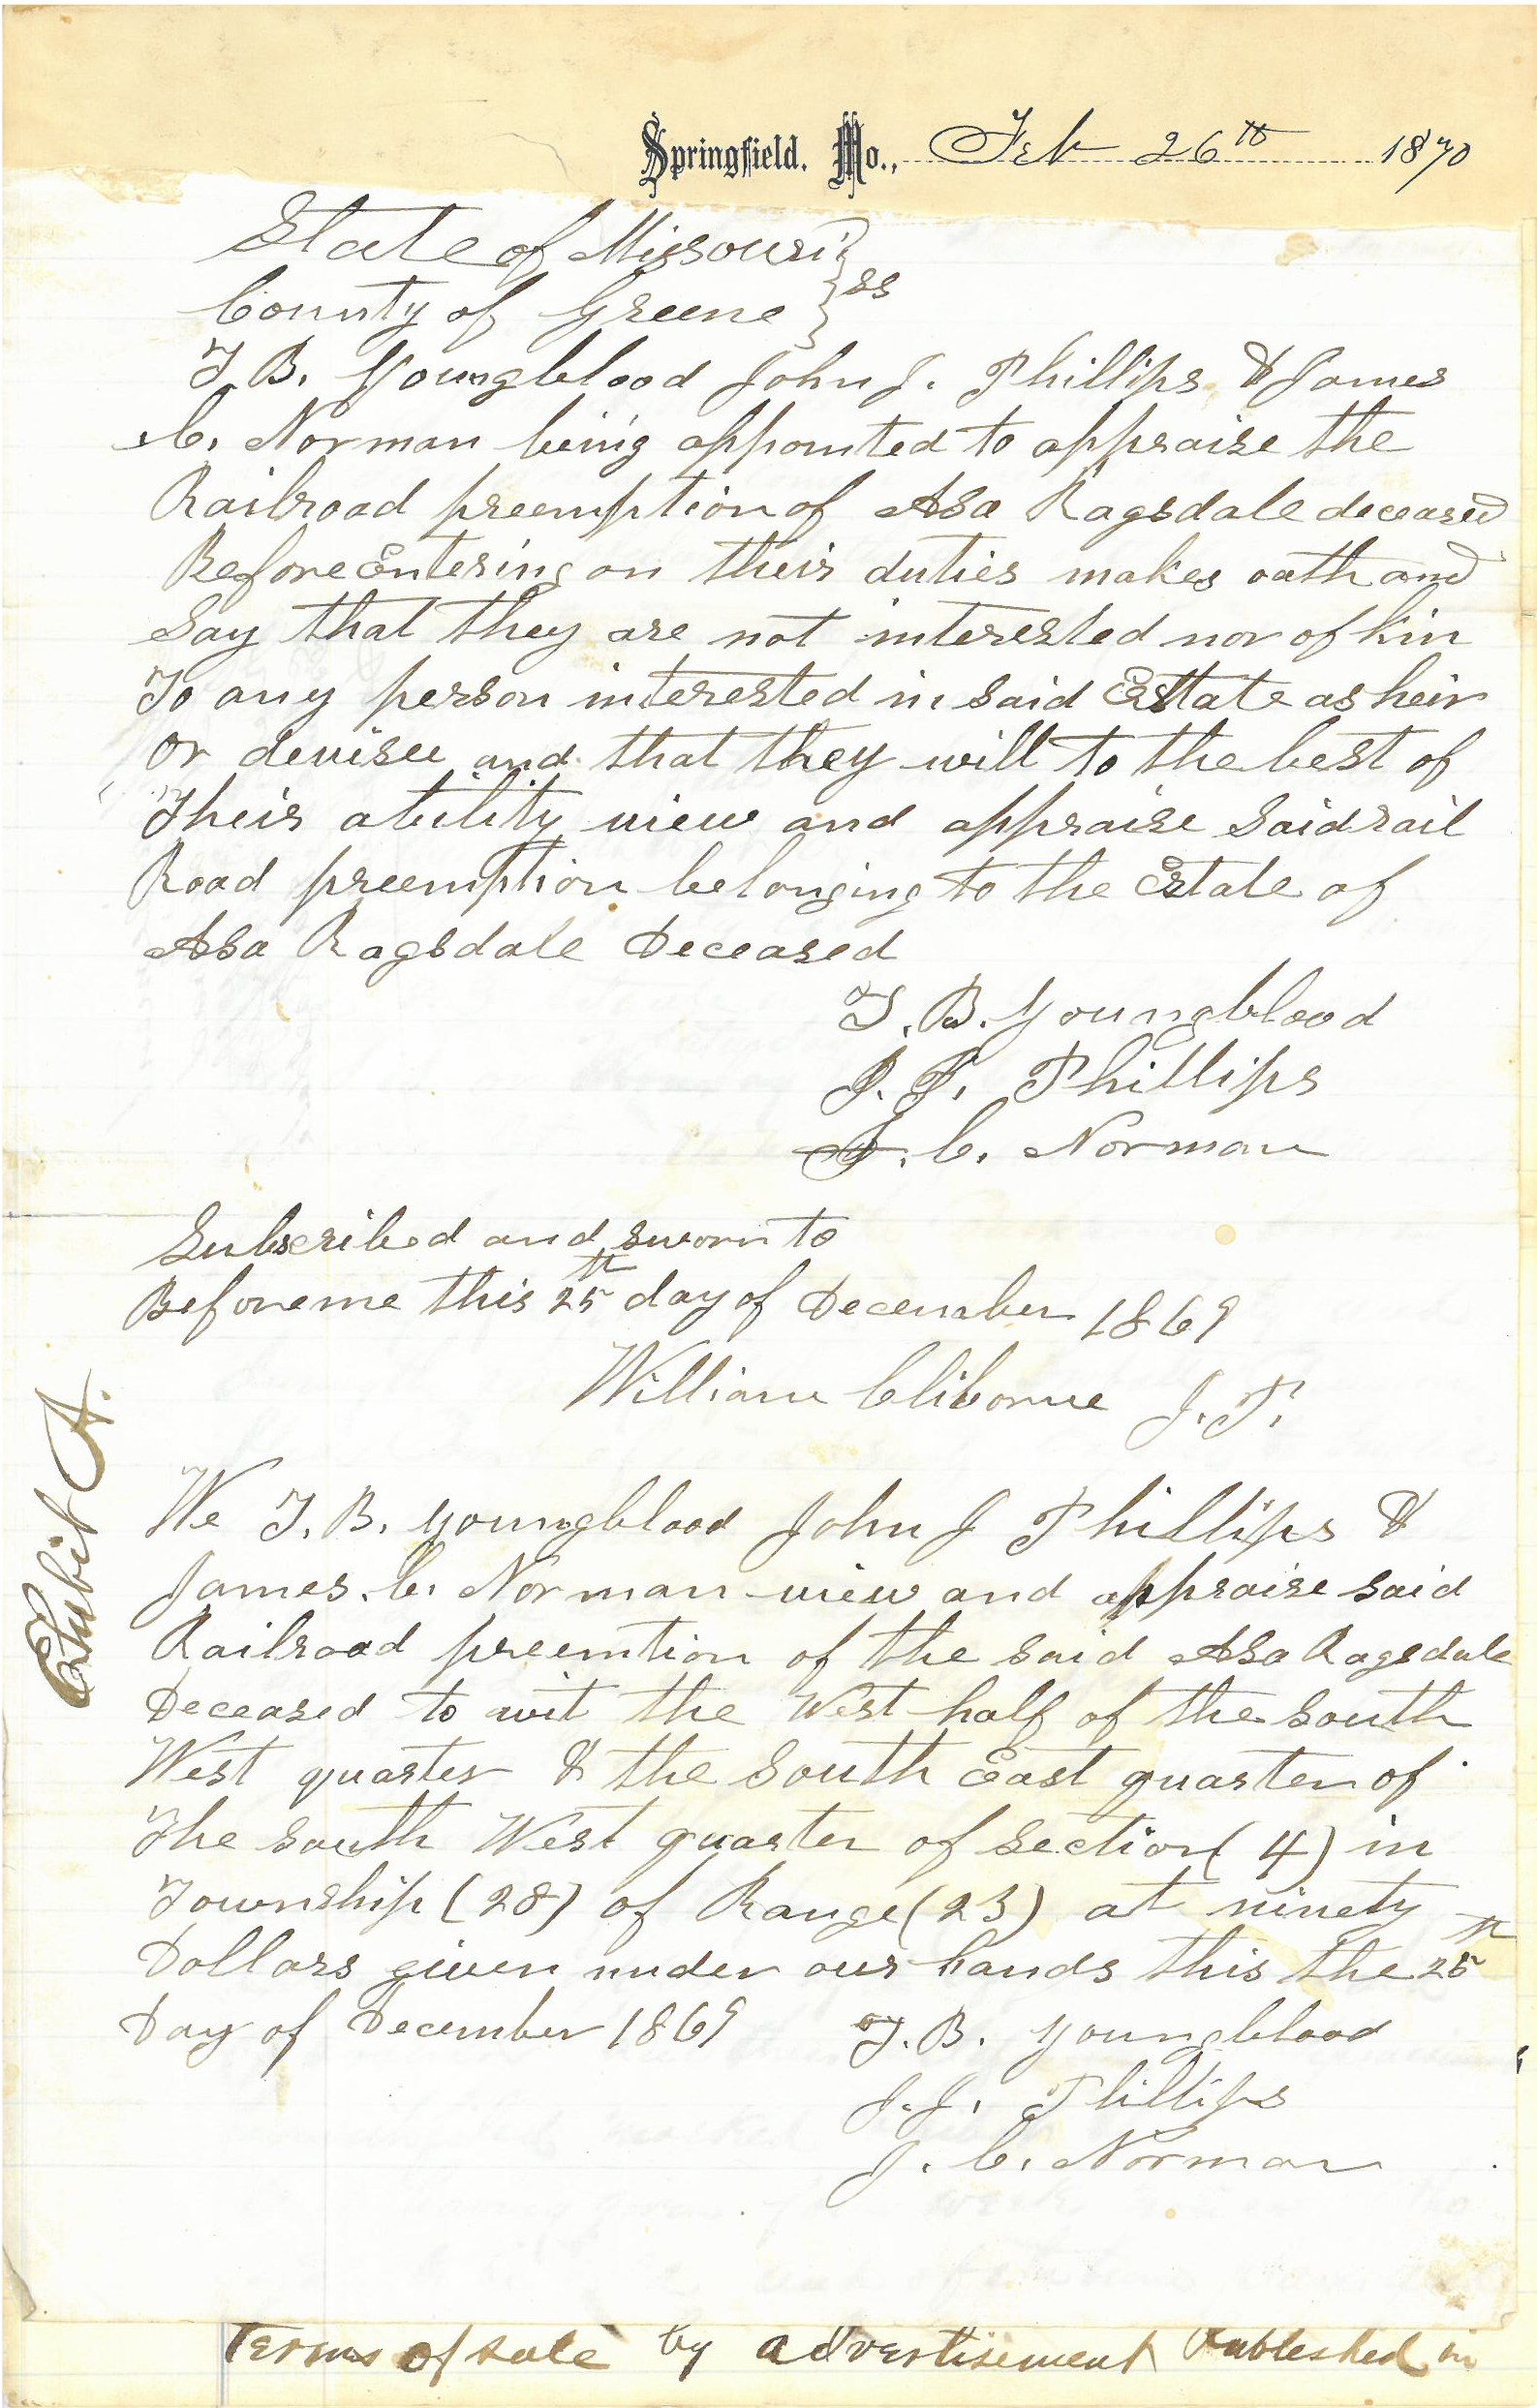 Springfield. Mo., Feb 26th 1870
State of Missouri } ss
County of Greene }
T. B. Youngblood John J. Phillips & James
C. Norman being appointed to appraise the
Railroad preemption of Asa Ragsdale deceased
Before Entering on their duties makes oath and
Say that they are not interested nor of kin
To any person interested in said Estate as heir
or devisee and that they will to the best of
Their ability view and appraise Said rail
Road preemption belonging to the Estate of
Asa Ragsdale Deceased
T. B. Youngblood
J. J. Phillips
J. C. Norman
Subscribed and sworn to
Before me this 25th day of December 1869
William Cliborne J. P.
Exhibit A.
We T. B. Youngblood John J Phillips &
James. C. Norman view and appraise said
Railroad preemtion of the said Asa Ragsdale
Deceased to wit the West half of the South
West quarter & the South East quarter of
The South West quarter of Section (4) in
Township (28) of Range (23) at ninety
Dollars given under our hands this the 25th
Day of December 1869
T. B. Youngblood
J. J. Phillips
J. C. Norman
Terms of sale by advertisement Published in